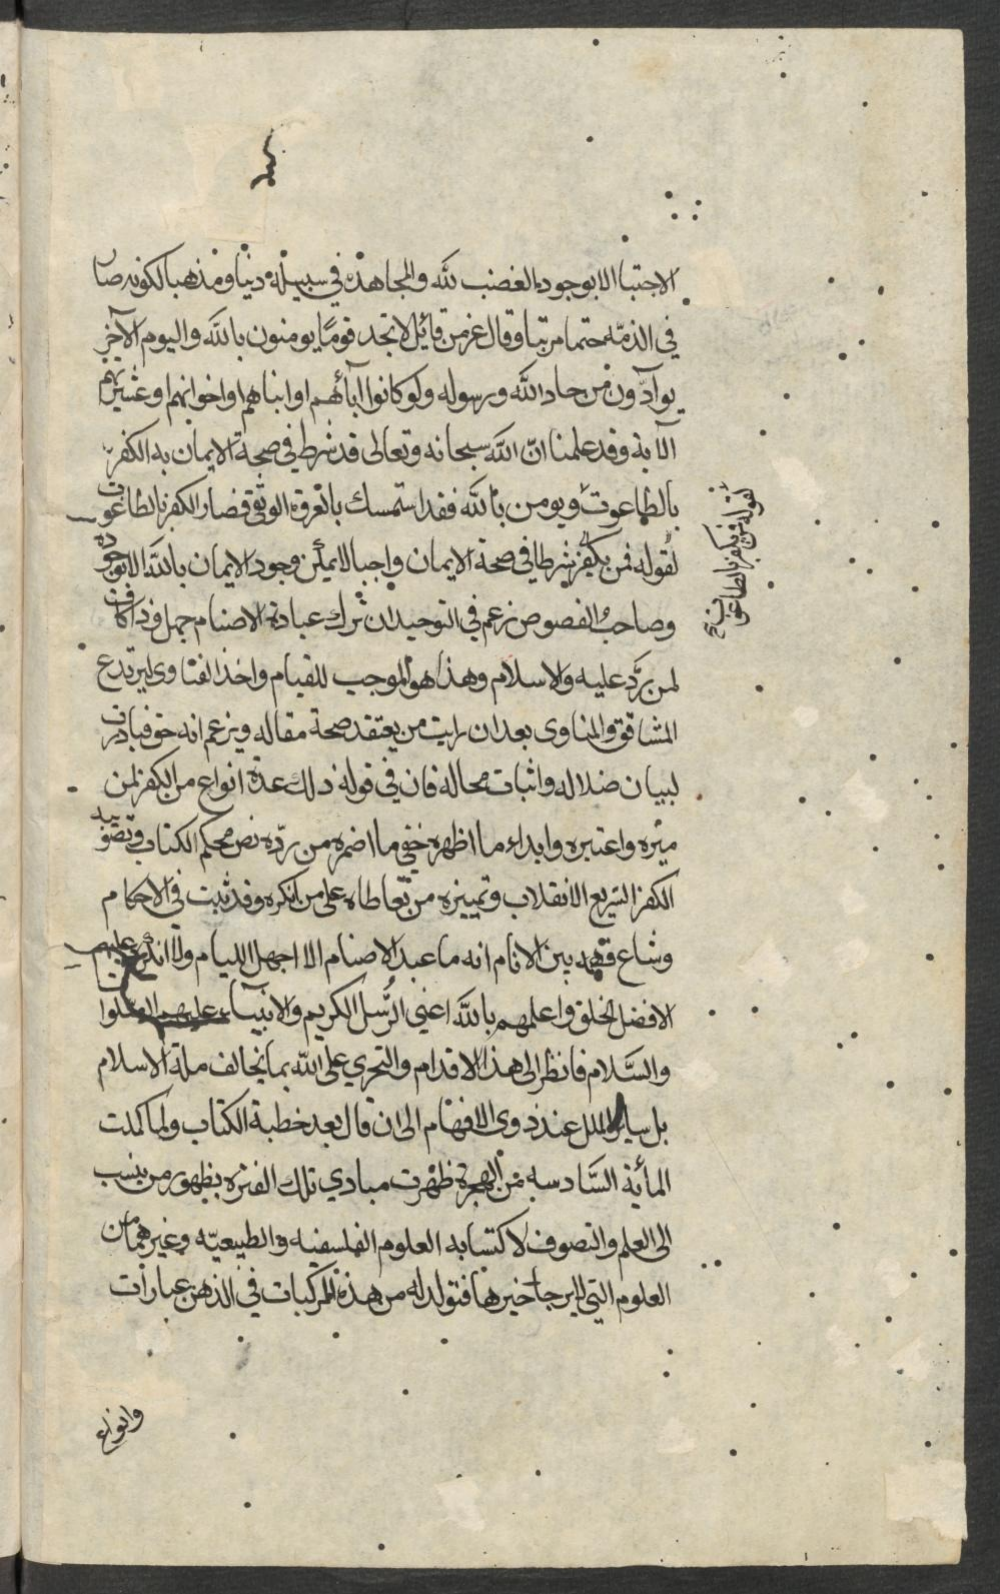 الاجتبا الا بوجود الغضب لله والمجاهدة في سبيله دنيا ومذهبا لكونه صار
في الذمّة محتما مرتبا وقال عز من قائل لا تجد قومًا يومنون بالله واليوم الآخر
يوآدّون من حاد الله ورسوله ولو كانوا اباءهم او ابناهم او اخوانهم او عشيرتهم
الآية وقد علمنا انّ الله سبحانه وتعالى قد شرط في صحة الايمان به الكفر
بالطاغوت ويومن بالله فقد استمسك بالعروة الوثقى فصار الكفر بالطاغوت
لقوله فمن يكفر شرطا في صحة الايمان واجبا لا يمكن وجود الايمان بالله الا بوجوده
وصاحب الفصوص زعم في التوحيد ان ترك عبادة الاصنام جهل فرد كاف
لمن يردّ عليه والاسلام وهذا هو الموجب للقيام واخذ الفتاوى ليرتدع
المشاقق والمناوى بعد ان رايت من يعتقد صحة مقاله ويزعم انه حق فبادرت
لبيان ضلاله واثبات محاله فان في قوله ذلك عدة انواع من الكفر لمن
ميزه واعتبره وابداء ما اظهره خفي ما اضمره من ردّه نص محكم الكتاب وتصويبه
الكفر السريع الانقلاب وتمييزه من تعاطاه على من انكره وقد ثبت في الاحكام
وشاع بين الانام انه ما عبد الاصنام الا اجهل الليام ولا انكر عليهم
الا افضل الخلق واعلمهم بالله اعني الرُسل الكريم والانبيآء عليهم الصلوا
والسَّلام فانظر الى هذا الاقدام والتجري على الله بما يخالف ملة الاسلام
بل ساير الملل عند ذوي الافهام الى ان قال بعد خطبة الكتاب ولما كملت
المأية السَّادسه من الهجرة ظهرت مبادي تلك الفتره بظهور من ينسب
الى العلم والتصوف لاكتسابه العلوم الفلسفيه والطبيعيّه وغيرهما من
العلوم التي لا يرجا خيرها فتولد له من هذه المركبات في الذهن عبارات
وانواع
لقوله فمن يكفر بالطاغوت صح